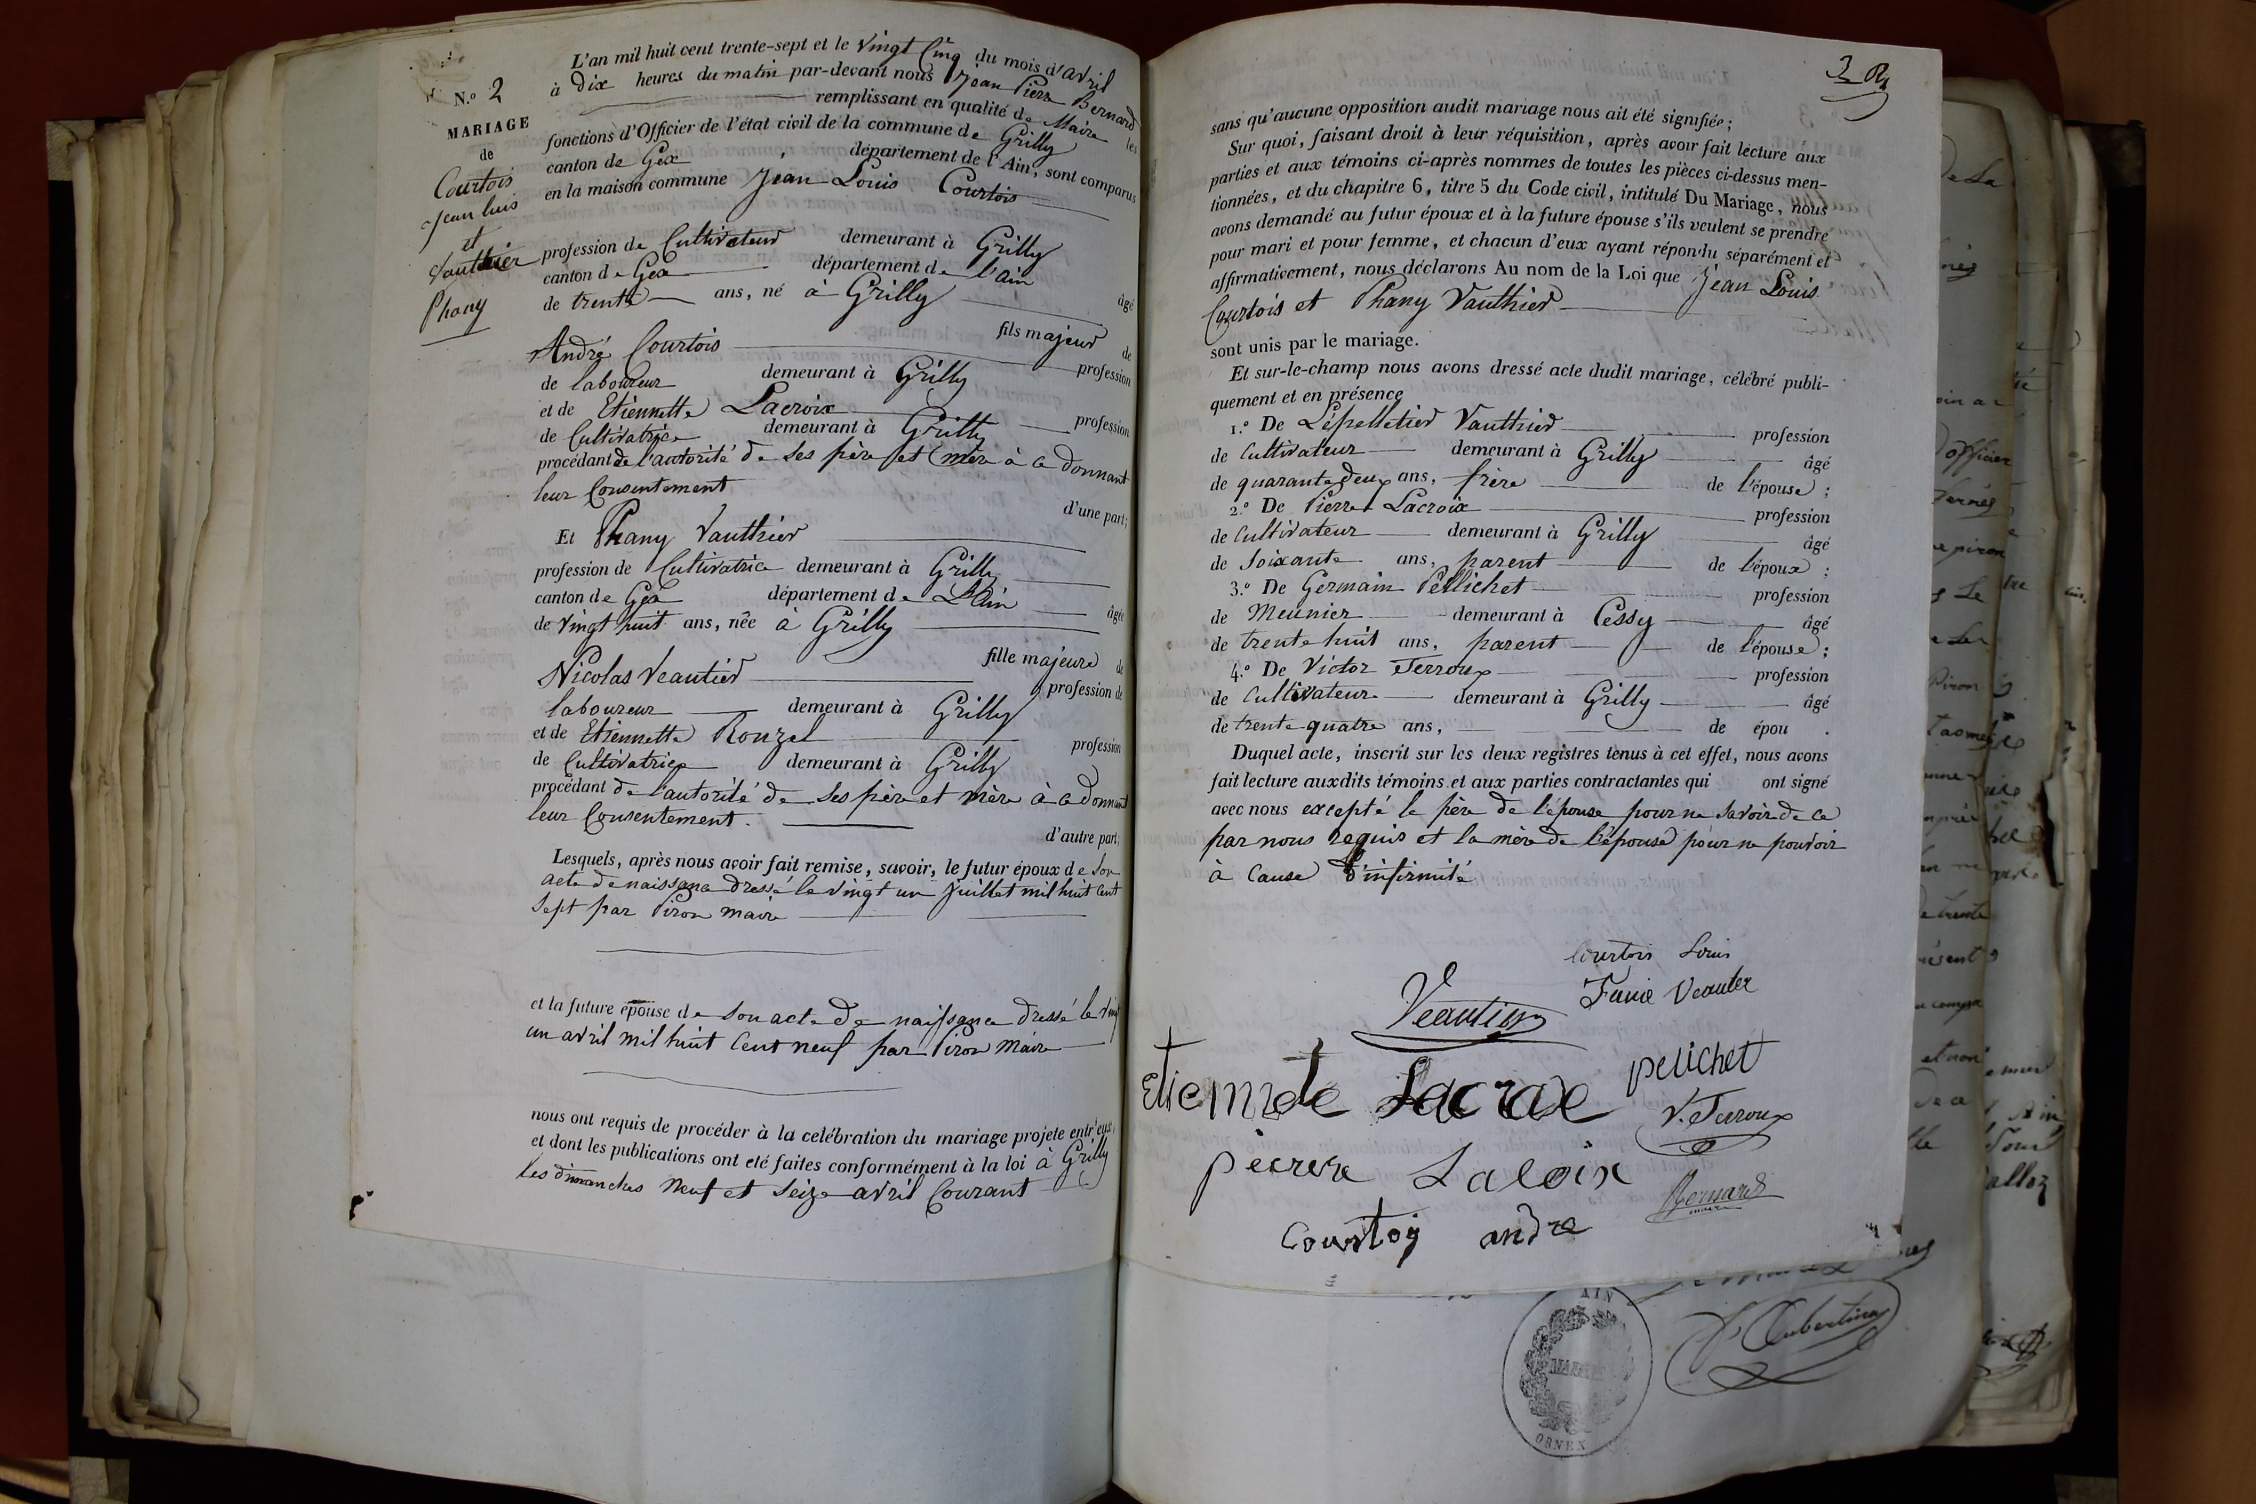 L'an mil huit cent trente-sept et le vingt Cinq du mois d'avril
N.o 2
à Dix heures du matin par-devant nous Jean Pierre Bernard
remplissant en qualité de Maire les
MARIAGE
fonctions d'Officier de l'état civil de la commune de Grilly
de
canton de Gex département de l'Ain, sont comparus
Courtois
en la maison commune Jean Louis Courtois
Jean luis
et
profession de Cultivateur demeurant à Grilly
Vauthier
canton de Gex département de l'ain
âgé
Phany
de trente ans, né à Grilly
fils majeur de
André Courtois profession
de laboureur demeurant à Grilly
et de Etiennette Lacroix profession
de Cultivatrice demeurant à Grilly
procédant de l'autorité de ses père et mère à ce Donnant
leur Consentement
d'une part;
Et Phany Vauthier
profession de Cultivatrice demeurant à Grilly
canton de Gex département de L'Ain âgée
de vingt huit ans, née à Grilly
fille majeure de
Nicolas Veautier profession de
laboureur demeurant à Grilly
et de Etiennette Rouzel profession
de Cultivatrice demeurant à Grilly
procédant de l'autorité de ses père et mère à ce donnant
leur Consentement.
d'autre part;
Lesquels, après nous avoir fait remise, savoir, le futur époux de son
acte de naissance dressé le vingt un Juillet mil huit Cent
Sept par Piron maire
et la future épouse de son acte de naissance dressé le vingt
un avril mil huit Cent neuf par Piron maire
nous ont requis de procéder à la celébration du mariage projeté entr'eux,
et dont les publications ont eté faites conformément à la loi à Grilly
les dimanches Neuf et Seize avril Courant
3
sans qu'aucune opposition audit mariage nous ait été signifiée;
Sur quoi, faisant droit à leur réquisition, après avoir fait lecture aux
parties et aux témoins ci-après nommes de toutes les pièces ci-dessus men-
tionnées, et du chapitre 6, titre 5 du Code civil, intitulé Du Mariage, nous
avons demandé au futur époux et à la future épouse s'ils veulent se prendre
pour mari et pour femme, et chacun d'eux ayant répondu séparément et
affirmativement, nous déclarons Au nom de la Loi que Jean Louis
Courtois et Phany Vauthier
sont unis par le mariage.
Et sur-le-champ nous avons dressé acte dudit mariage, célébré publi-
quement et en présence
1.o De Lépelletier Vauthier profession
de Cultivateur demeurant à Grilly âgé
de quarante deux ans, frère de l'épouse;
2.o De Pierre Lacroix profession
de Cultivateur demeurant à Grilly âgé
de Soixante ans, parent de l'époux;
3.o De Germain Pellichet profession
de Meunier demeurant à Cessy âgé
de trente huit ans, parent de l'épouse;
4.o De Victor Terroux profession
de Cultivateur demeurant à Grilly âgé
de trente quatre ans, de épou .
Duquel acte, inscrit sur les deux registres tenus à cet effet, nous avons
fait lecture auxdits témoins et aux parties contractantes qui ont signé
avec nous excepté le père de l'épouse pour ne savoir de ce
par nous requis et la mère de l'épouse pour ne pouvoir
à Cause d'infirmité
Courtois Louis
Veautier
Fanie Veauter
Etiennete Lacrax
pelichet
V. Terroux
pierere Lacoix
Bernard
Courtoy andre
AIN
MAIRIE
ORNEX